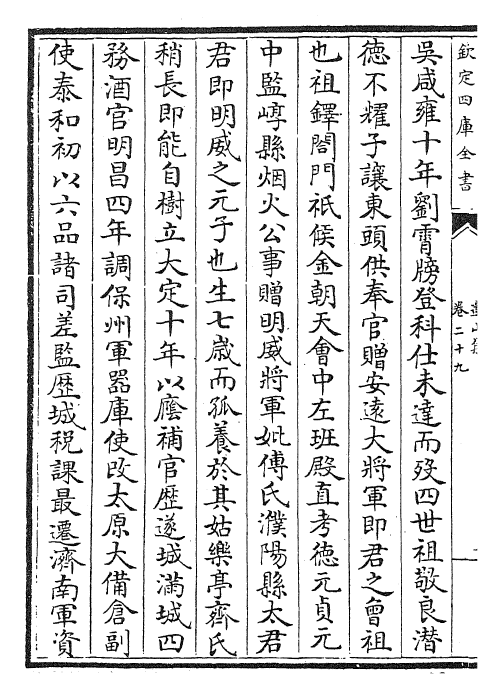 欽定四庫全書
卷二十九
吳咸雍十年劉霄牓登科仕未達而歿四世祖敬良潛
德不耀子讓東頭供奉官贈安遠大將軍即君之曾祖
也祖鐸閤門祗候金朝天會中左班殿直考德元貞元
中監崞縣烟火公事贈明威將軍妣傅氏濮陽縣太君
君即明威之元子也生七歲而孤養於其姑樂亭齊氏
稍長即能自樹立大定十年以廕補官歴遂城滿城四
務酒官明昌四年調保州軍器庫使改太原大備倉副
使泰和初以六品諸司差監歴城税課最遷濟南軍資